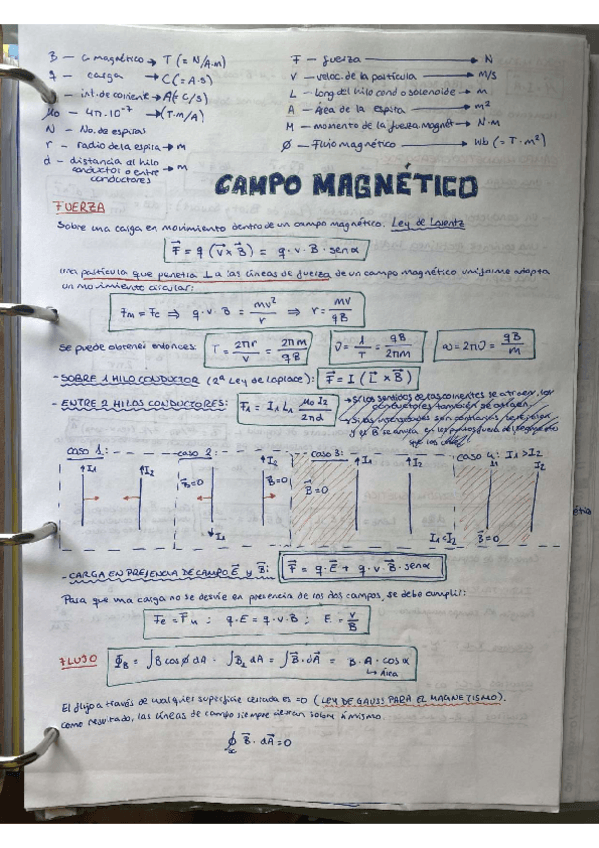 B — c. magnético → T (= N/A·m)
q — carga → C (= A·s)
I — int. de corriente → A (= C/s)
μo — 4π·10⁻⁷ → (T·m/A)
N — No. de espiras
r — radio de la espira → m
d — distancia al hilo conductor o entre conductores → m
F — fuerza → N
V — veloc. de la partícula → m/s
L — long. del hilo cond. o solenoide → m
A — Área de la espira → m²
M — momento de la fuerza magnét. → N·m
Ø — Flujo magnético → Wb (= T·m²)
CAMPO MAGNÉTICO
FUERZA
Sobre una carga en movimiento dentro de un campo magnético. Ley de Lorentz
F⃗ = q (v⃗ x B⃗) = q · v · B · senα
Una partícula que penetra ⊥ a las líneas de fuerza de un campo magnético uniforme adopta
un movimiento circular:
Fm = Fc ⇒ q · v · B = mv²/r ⇒ r = mv/qB
Se puede obtener entonces: T = 2πr/v = 2πm/qB
υ = 1/T = qB/2πm
ω = 2πυ = qB/m
- SOBRE 1 HILO CONDUCTOR (2ª Ley de Laplace): F⃗ = I (L⃗ x B⃗)
- ENTRE 2 HILOS CONDUCTORES: F1 = I1 L1 μo I2/2πd
→ Si los sentidos de las corrientes se atraen, los
conductores también se atraen.
caso 1: caso 2: caso 3: caso 4: I1 > I2
I1 I2 B⃗=0 I1 I2 B⃗=0 B⃗=0 I1 I2 I1 < I2 I1 I2 B⃗=0
- CARGA EN PRESENCIA DE CAMPO E⃗ y B⃗: F⃗ = q · E⃗ + q · v · B⃗ · senα
Para que una carga no se desvíe en presencia de los dos campos, se debe cumplir:
Fe = Fm ; q · E = q · v · B ; E = v/B
FLUJO
ΦB = ∫B cosφ dA = ∫B⊥ dA = ∫B⃗ · dA⃗ = B · A · cosα
↳ Área
El flujo a través de cualquier superficie cerrada es =0 (LEY DE GAUSS PARA EL MAGNETISMO).
como resultado, las líneas de campo siempre cierran sobre sí mismo.
∮ B⃗ · dA⃗ = 0